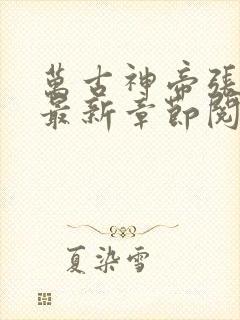 萬古神帝張
最新章節閱
夏染雪